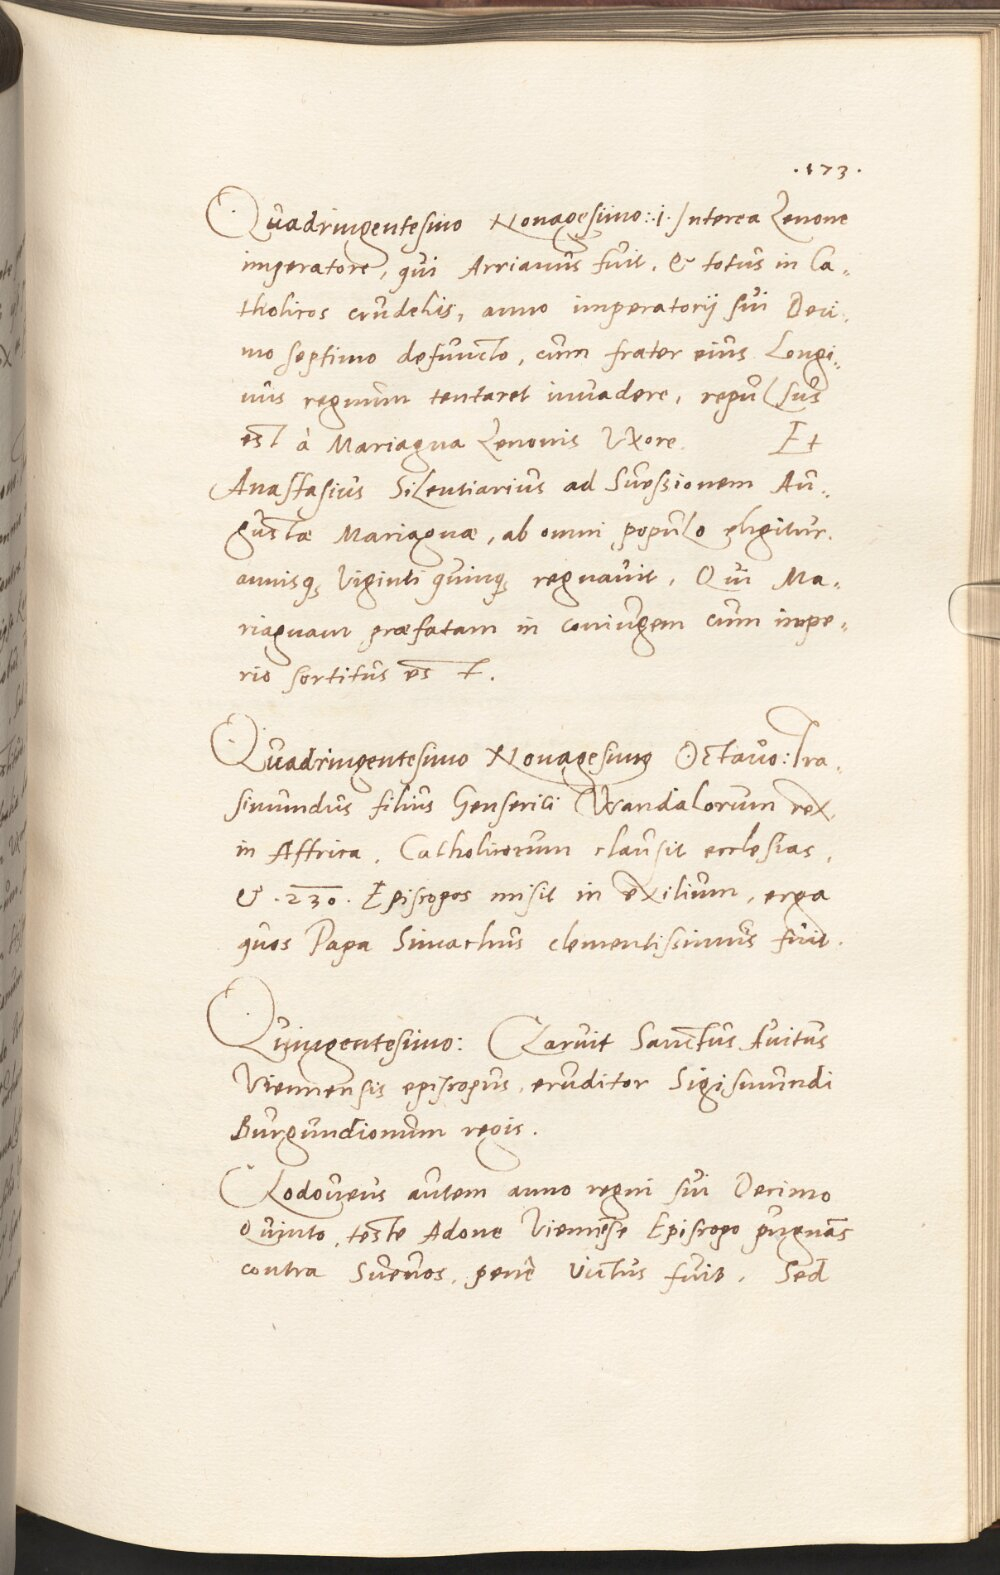 .173.
Quadringentesimo Nonagesimo: i. Interea Zenone
imperatore, qui Arrianus fuit, & totus in Ca-
tholicos crudelis, anno imperatorij sui Deci-
mo septimo defuncto, cum frater eius Longi-
nus regnum tentaret invadere, repulsus
est à Mariagna Zenonis Uxore. Et
Anastasius Silentiarius ad Suessionem Au-
gustæ Mariagnæ, ab omni populo eligitur.
annisq, Viginti quinq, regnavit. Qui Ma-
riagnam præfatam in coniugem cum impe-
rio sortitus est.
Quadringentesimo Nonagesimo Octavo: Tra-
simundus filius Genserici Wandalorum rex,
in Affrica, Catholicorum clausit ecclesias,
& .230. Episcopos misit in exilium, erga
quos Papa Simachus clementissimus fuit.
Quingentesimo: Claruit Sanctus Avitus
Viennensis episcopus, eruditor Sigismundi
Burgundionum regis.
Clodoveus autem anno regni sui Decimo
Quinto, teste Adone Viennēse Episcopo pugnās
contra Suevos, penè victus fuit. Sed